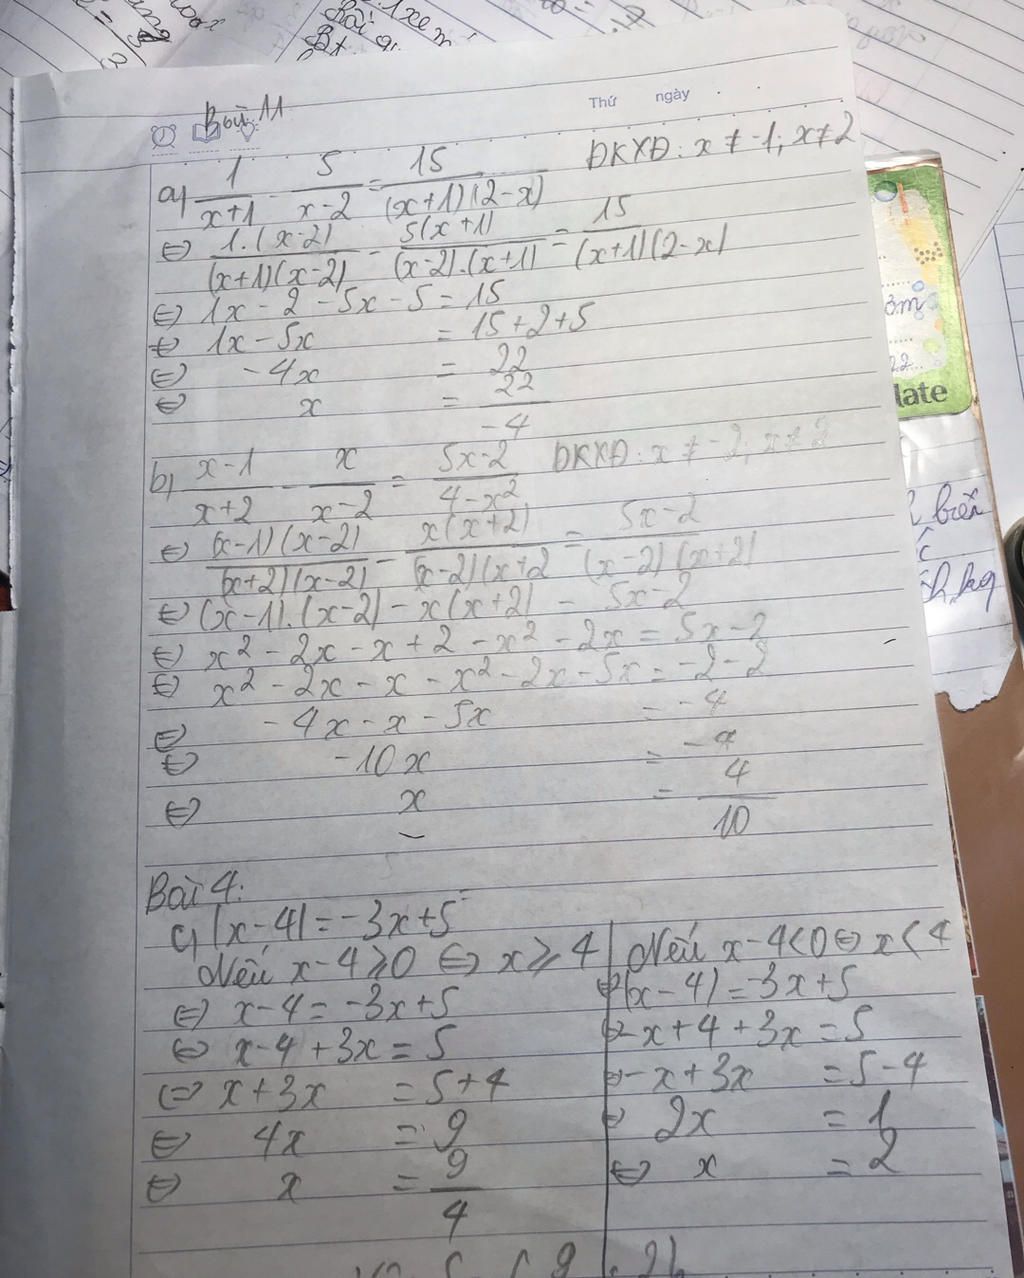 Thứ ngày
Bài 11
a) 1/(x+1) - 5/(x-2) = 15/((x+1)(2-x)) ĐKXĐ: x ≠ -1; x ≠ 2
⇔ 1.(x-2)/((x+1)(x-2)) - 5(x+1)/((x-2).(x+1)) = 15/((x+1)(2-x)
⇔ 1x - 2 - 5x - 5 = 15
⇔ 1x - 5x = 15+2+5
⇔ -4x = 22
⇔ x = 22/-4
b) (x-1)/(x+2) - x/(x-2) = (5x-2)/(4-x²) ĐKXĐ: x ≠ -2; x ≠ 2
⇔ (x-1)(x-2)/((x+2)(x-2)) - x(x+2)/((x-2)(x+2) = (5x-2)/((x-2)(x+2))
⇔ (x-1).(x-2) - x(x+2) = 5x-2
⇔ x² - 2x - x + 2 - x² - 2x = 5x-2
⇔ x² - 2x - x - x² - 2x - 5x = -2-2
⇔ -4x - x - 5x = -4
⇔ -10x = -4
⇔ x = 4/10
Bài 4:
c) |x-4| = -3x+5
Nếu x-4 ≥ 0 ⇔ x ≥ 4
⇔ x-4 = -3x+5
⇔ x-4+3x = 5
⇔ x+3x = 5+4
⇔ 4x = 9
⇔ x = 9/4
Nếu x-4<0 ⇔ x<4
⇔ -(x-4) = -3x+5
⇔ -x+4+3x = 5
⇔ -x+3x = 5-4
⇔ 2x = 1
⇔ x = 2
late
biến